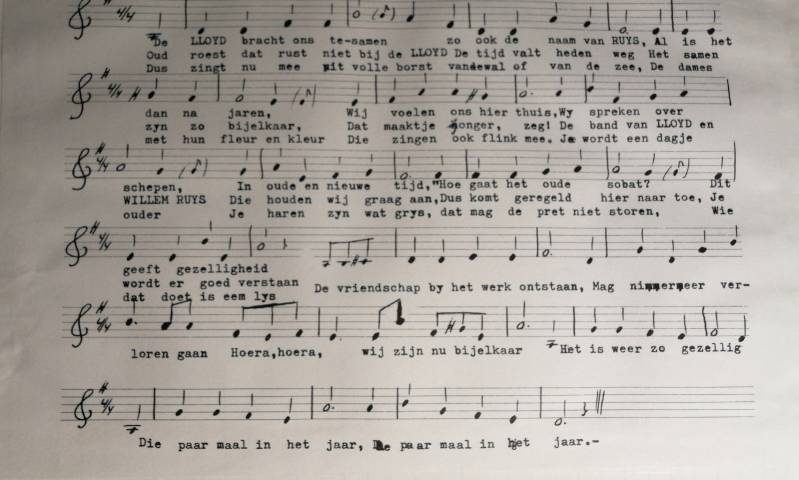 De LLOYD bracht ons te-samen zo ook de naam van RUYS, Al is het
Oud roest dat rust niet bij de LLOYD De tijd valt heden weg Het samen
Dus zingt nu mee uit volle borst vandewal of van de zee, De dames
dan na jaren, Wij voelen ons hier thuis,Wy spreken over
zyn zo bijelkaar, Dat maaktje jonger, zeg! De band van LLOYD en
met hun fleur en kleur Die zingen ook flink mee. Je wordt een dagje
schepen, In oude en nieuwe tijd,"Hoe gaat het oude sobat? Dit
WILLEM RUYS Die houden wij graag aan,Dus komt geregeld hier naar toe, Je
ouder Je haren zyn wat grys, dat mag de pret niet storen, Wie
geeft gezelligheid
wordt er goed verstaan
dat doet is eem lys
De vriendschap by het werk ontstaan, Mag nimmermeer ver-
loren gaan Hoera,hoera, wij zijn nu bijelkaar Het is weer zo gezellig
Die paar maal in het jaar, Die paar maal in het jaar.-